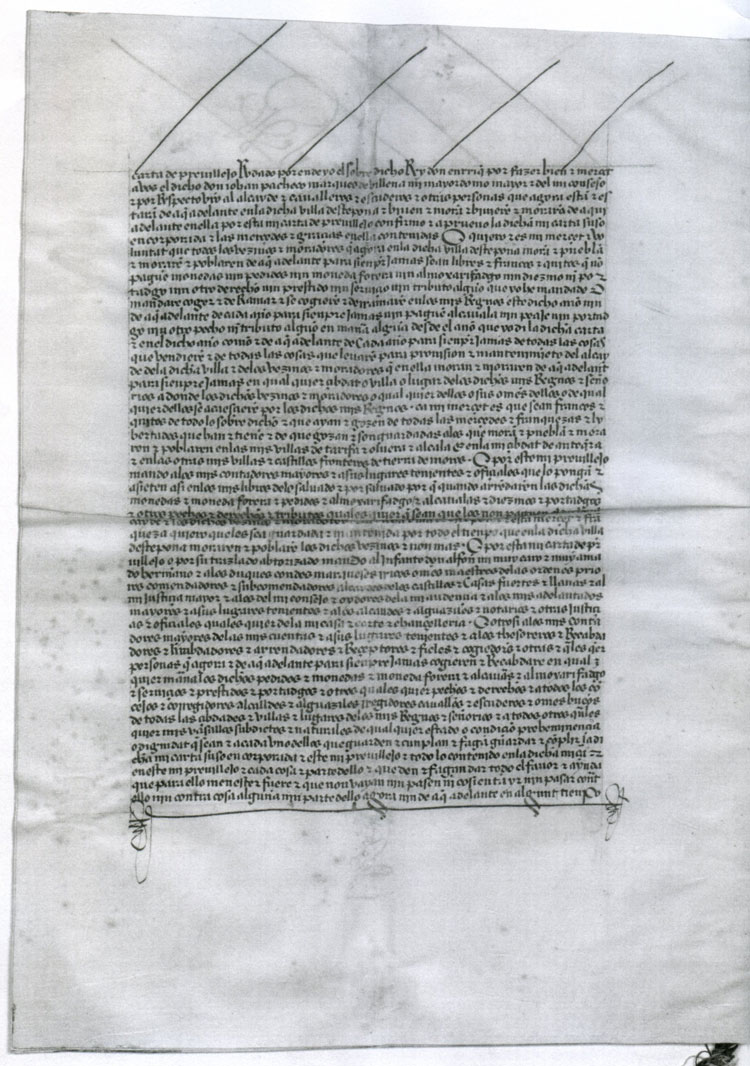 carta de preuillejo E yo dado por ende yo el sobre dicho Rey don enrriq̃ por fazer bien e merçet
a vos el dicho don iohan pacheco marques de villena mi mayordomo mayor e del mi consejo
e por Respecto ṽro al alcayde e caualleros e escuderos e otras personas que agora está e es
tará de aq̃ adelante en la dicha villa destepona e biuen e morã e biuierẽ e morarã de aqui
adelante en ella por esta mi carta de preuillejo confirmo e aprueuo la dicha mi carta suso
encorporada e las merçedes e graçias en ella contenidas E quiero e es mi merçet e vo
luntat que todos los vezinos e moradores q̃ agora en la dicha villa destepona morã e pueblã
e morarẽ e poblaren de aq̃ adelante para sienpre jamas sean libres e francos e quitos q̃ nõ
paguẽ monedas nin pedidos nin moneda forera nin almoxarifadgo nin diezmo ni por
tadgo nin otro derecho nin prestido nin seruiçio nin tributo algũo que yo he mandado o
mandare coger e de Ramar e se cogiere e derramare en los mis Regnos este dicho año nin
de aq̃ adelante de cada año para sienpre jamas nin paguẽ alcauala nin peaje nin portad
go nin otro pecho ni tributo algũo en manã algũa desde el año que yo di la dicha carta
e en el dicho año como e de aq̃ adelante de cada año para sienpre jamas de todas las cosas
que vendierẽ e de todas las cosas que leuarẽ para prouision e mantenimiẽto del alcay
de de la dicha villa e de los vezinos e moradores q̃ en ella moran e moraren de aq̃ adelant
para sienpre jamas en qual quier çibdat o villa o lugar de los dichos mis Regnos e seño
rios a donde los dichos vezinos e moradores o qual quier dellos o sus omẽs dellos o de qual
quier dellos se acaesçiere por los dichos mis Regnos · ca mi merçet es que sean francos e
quitos de todo lo sobre dicho e que ayan e gozen de todas las merçedes e franquezas e ly
bertades que han e tiene e de que gozan e son guardadas a los que morã e pueblã e mora
ren e poblaren en las mis villas de tarifa e oluera e alcala e en la mi çibdat de anteq̃ra
e en las otras mis villas e castillos fronteros de tierra de moros · E por este mi preuillejo
mando a los mis contadores mayores e a sus lugares tenientes e ofiçiales que lo pongã e
asienten asi en los mis libros de lo saluado e por saluado por q̃ quando arrendaren las dichas
monedas e moneda forera e pedidos e almoxarifadgo e alcaualas e diezmos e portadgos
e otros pechos e derechos e tributos quales quier q̃ sean que los non paguen
cayde e los dichos vezinos e moradores por esta merçet e frã
queza quiero que les sea guardada e mantenida por todo el tienpo que en la dicha villa
destepona moraren e poblarẽ los dichos vezinos e non mas · E por esta mi carta de pr̃
uillejo o por su traslado abtorizado mando al Infante don alfon̄ mi muy caro e muy ama
do hermano e a los duques condes marqueses rricos omes maestres de las ordenes prio
res comendadores e subcomendadores alcaydes de los castillos e casas fuertes e llanas e al
mi justiçia mayor e a los del mi consejo e oydores de la mi audiençia e a los mis adelantados
mayores e a sus lugares tenientes e a los alcaldes e alguaziles e notarios e otras justiçi
as e ofiçiales quales quier de la mi casa e corte e chançelleria · E otrosi a los mis conta
dores mayores de las mis cuentas e a sus lugares tenientes e a los thesoreros e Recabda
dores e Arrendadores e Reçeptores e fieles e cogedores e otras q̃les q̃er
personas q̃ agora e de aq̃ adelante para sienpre jamas cogieren e Recabdaren en qual
quier manã los dichos pedidos e monedas e moneda forera e alcaualas e almoxarifadgo
e seruiçios e prestidos e portadgos e otros quales quier pechos e derechos a todos los cõ
çejos e corregidores alcalldes e alguaziles rregidores caualleros e escuderos e omes buẽos
de todas las çibdades e villas e lugares de los mis Regnos e señorios e a todos otros q̃les
quier mis vasallos subdictos e naturales de qual quier estado o condiçio preheminençia
o dignidat q̃ sean e a cada vno dellos que guarden e cunplan e fagã guardar e cõplir la di
cha mi carta suso encorporada e este mi preuillejo e todo lo contenido en la dicha mi carta e
en este mi preuillejo e cada cosa e parte dello e que den e fagan dar todo el fauor e ayuda
que para ello menester fuere e que non vayan nin pasen ni cosienta yr nin pasar contra
ello nin contra cosa alguna nin parte dello agora nin de aq̃ adelante en algunt tienpo